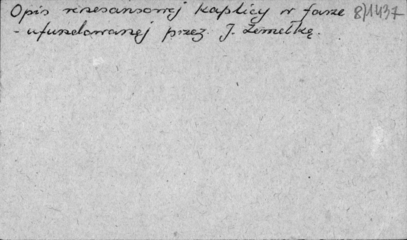 Opis renesansowej kaplicy w farze 8/1437
- ufundowanej przez J. Żemełkę.